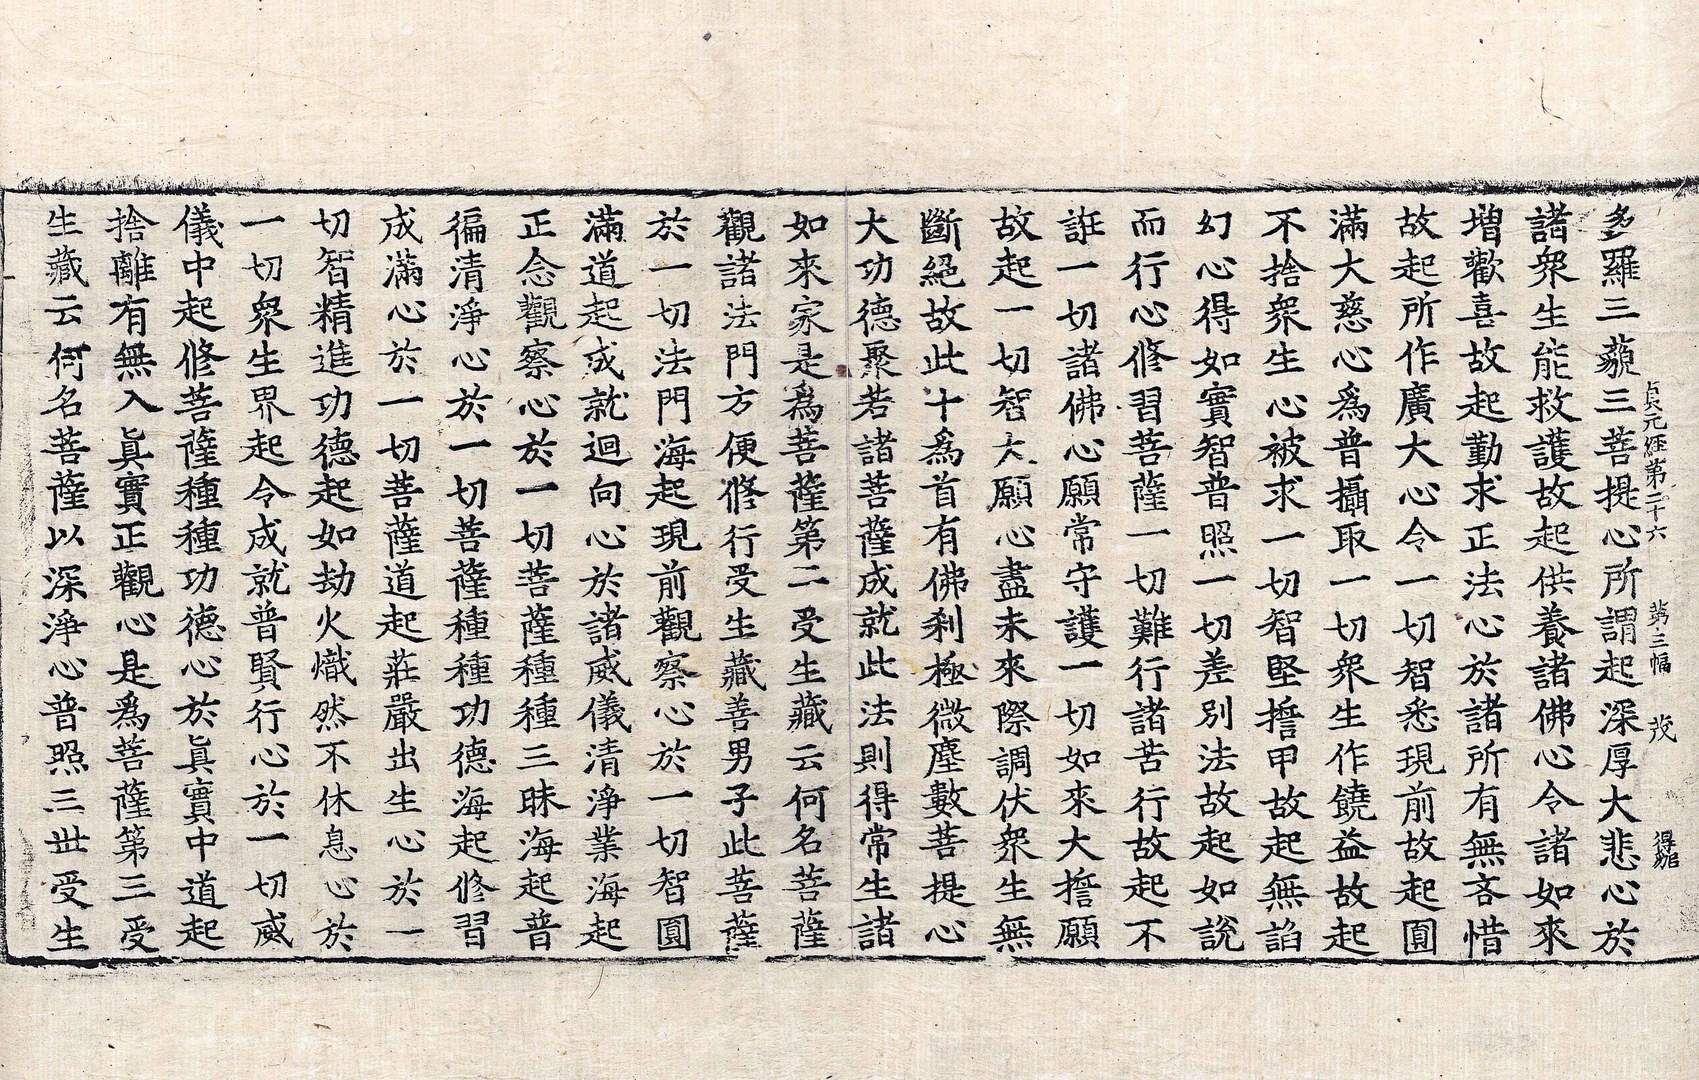 貞元經第二十六　第三幅　茂　得
多羅三藐三菩提心所謂起深厚大悲心於
諸衆生能救護故起供養諸佛心令諸如來
增歡喜故起勤求正法心於諸所有無吝惜
故起所作廣大心令一切智悉現前故起圓
滿大慈心爲普攝取一切衆生作饒益故起
不捨衆生心被求一切智堅擔甲故起無諂
幻心得如實智普照一切差別法故起如說
而行心修習菩薩一切難行諸苦行故起不
誑一切諸佛心願常守護一切如來大擔願
故起一切智大願心盡未來際調伏衆生無
斷絕故此十爲首有佛剎極微塵數菩提心
大功德聚若諸菩薩成就此法則得常生諸
如來家是爲菩薩第二受生藏云何名菩薩
觀諸法門方便修行受生藏善男子此菩薩
於一切法門海起現前觀察心於一切智圓
滿道起成就迴向心於諸威儀清淨業海起
正念觀察心於一切菩薩種種三昧海起普
徧清淨心於一切菩薩種種功德海起修習
成滿心於一切菩薩道起莊嚴出生心於一
切智精進功德起如劫火熾然不休息心於
一切衆生界起令成就普賢行心於一切威
儀中起修菩薩種種功德心於眞實中道起
捨離有無入眞實正觀心是爲菩薩第三受
生藏云何名菩薩以深淨心普照三世受生